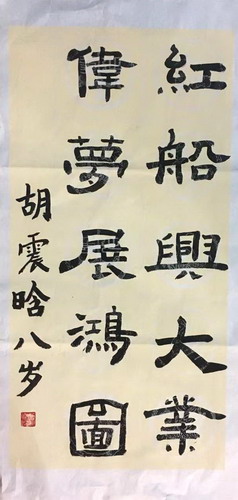 紅船興大業
偉夢展鴻圖
胡震晗八岁